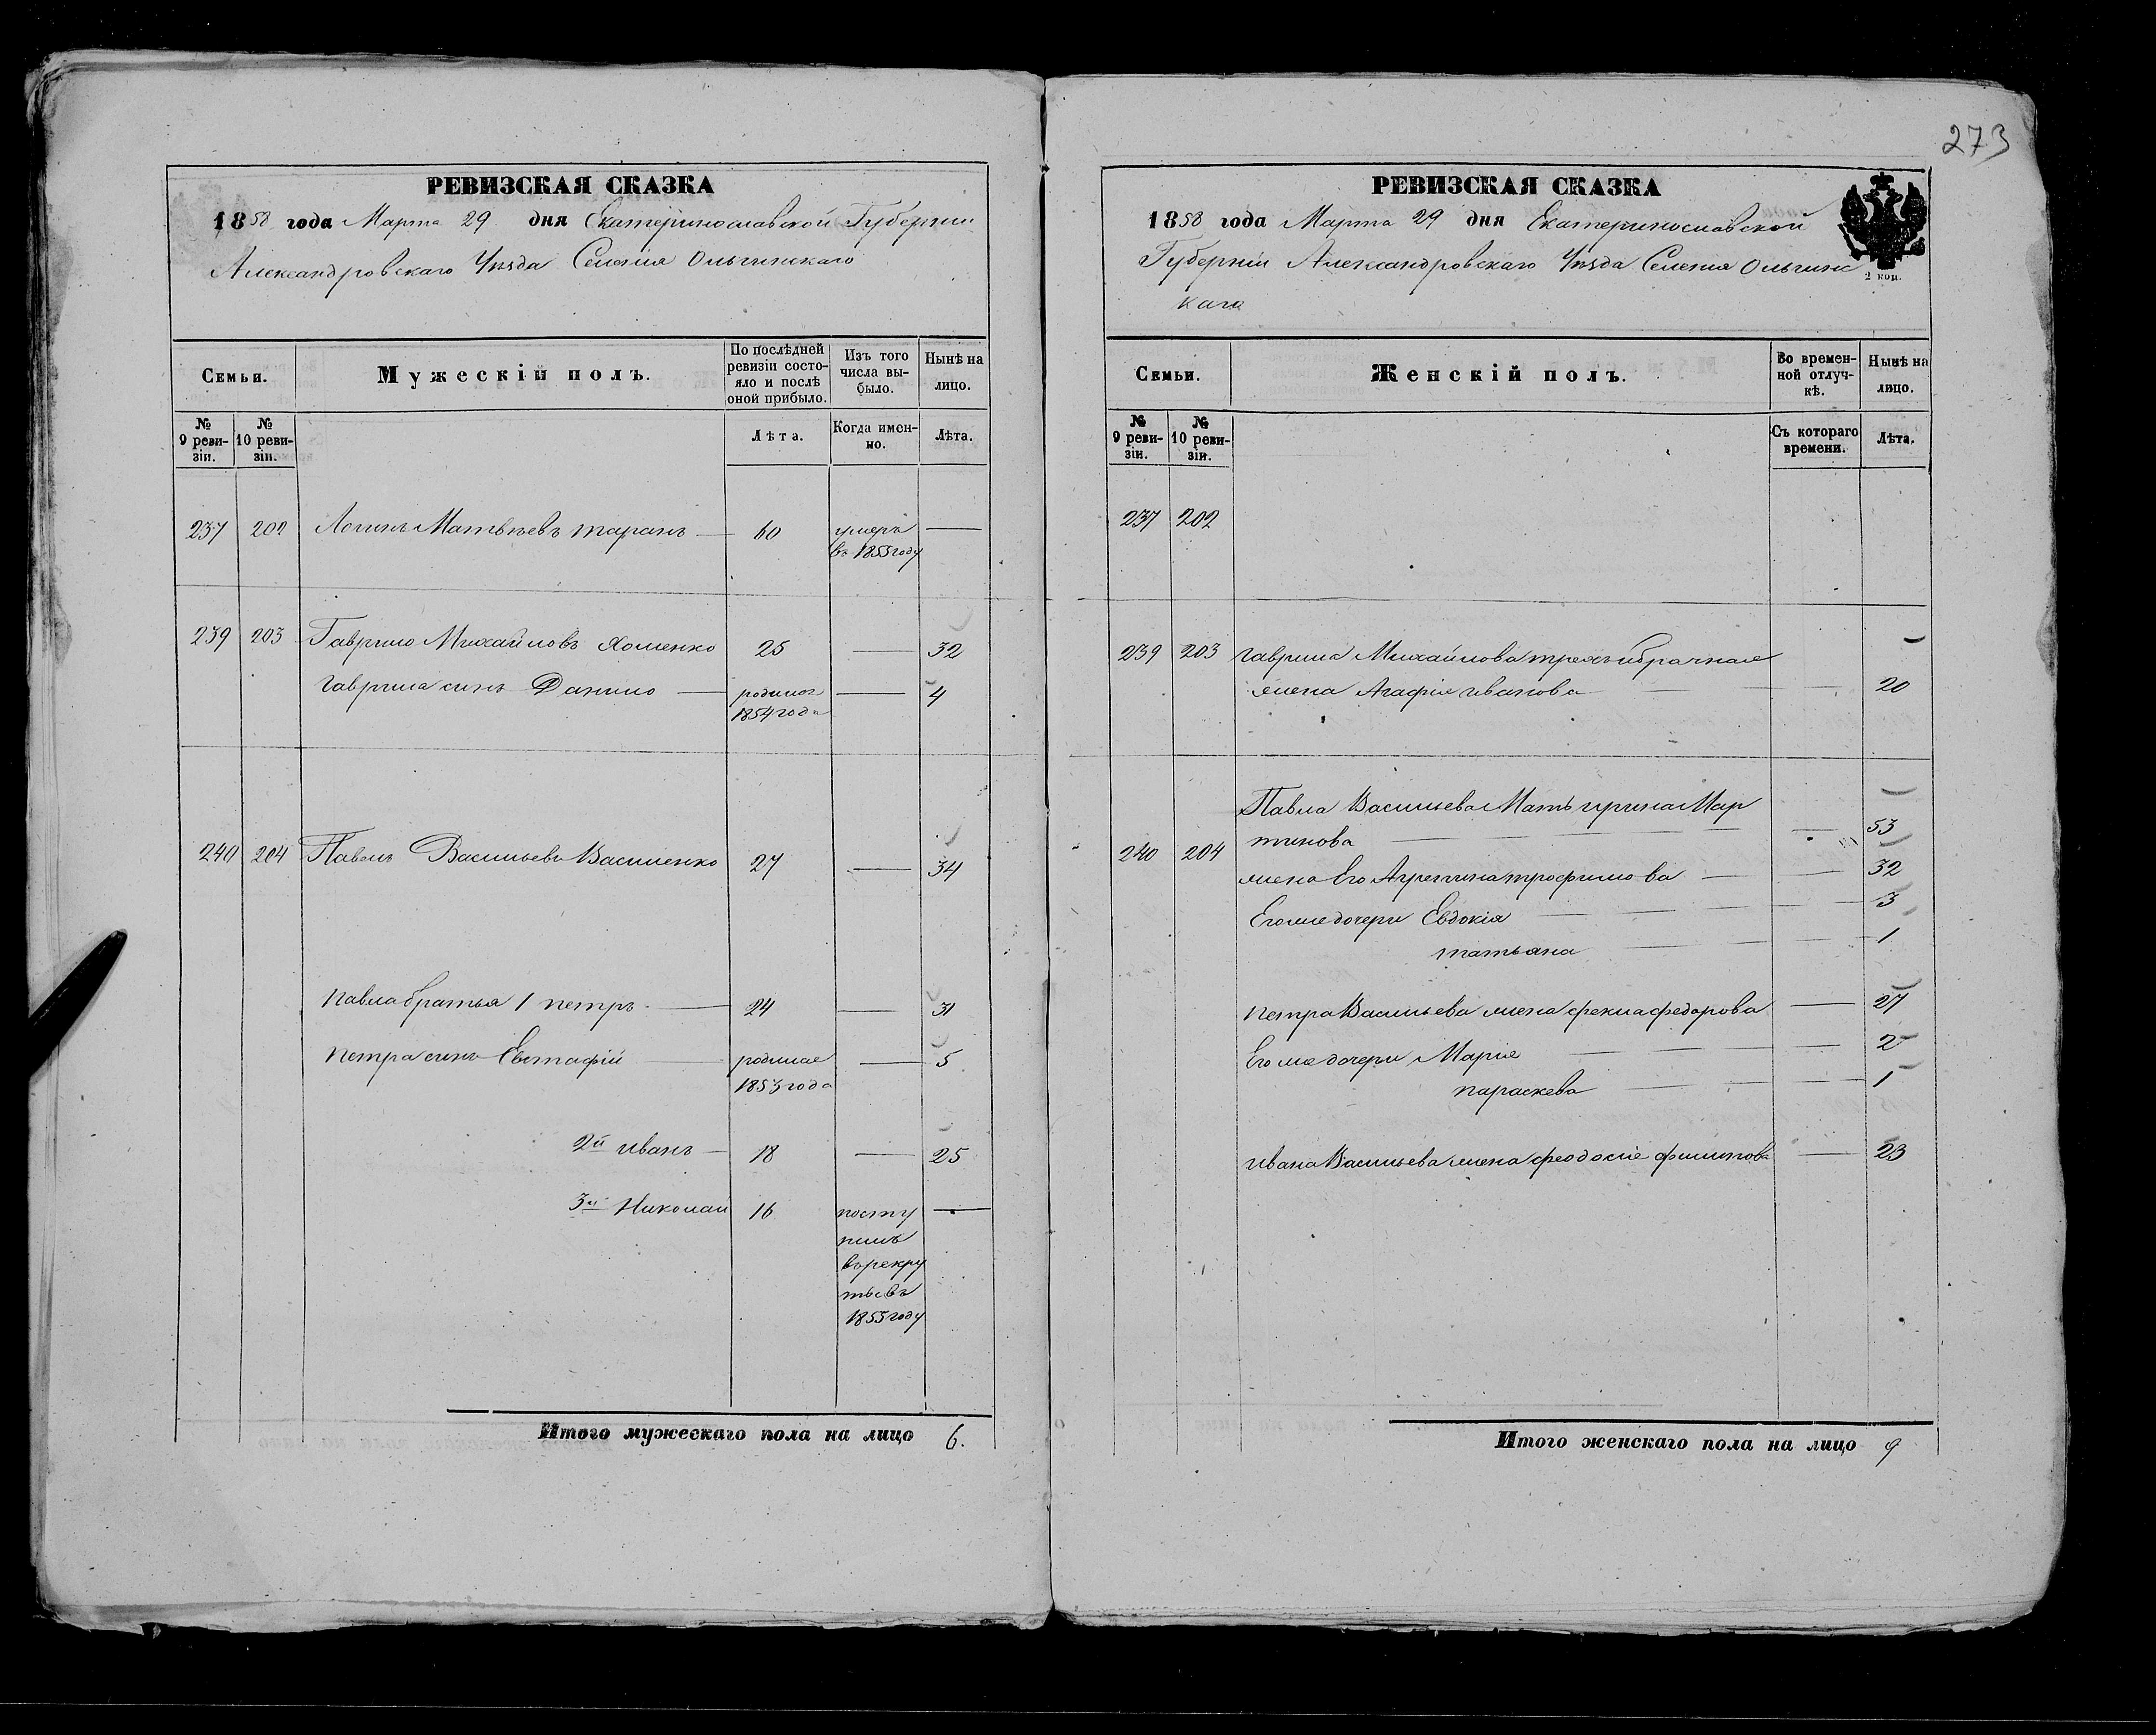 273
РЕВИЗСКАЯ СКАЗКА
1858 года Марта 29 дня Екатеринославской Губернии
Александровскаго Уѣзда Селения Ольгинскаго
Семьи. Мужескій полъ. По послѣдней ревизіи состояло и послѣ оной прибыло. Изъ того числа выбыло. Нынѣ на лицо.
№ 9 ревизіи. № 10 ревизіи. Лѣта. Когда именно. Лѣта.
237 202 Логинъ Матвѣевъ таранъ — 60 умеръ —
въ 1855 году
239 203 Гаврило Михайловъ Хоменко 25 — 32
Гаврила синъ Данило — родился — 4
1854 года
240 204 Павелъ Васильевъ Василенко 27 — 34
павла братья 1 петръ — 24 — 31
петра синъ Евстафій — родился — 5
1853 года
2й иванъ — 18 — 25
3й Николай 16 посту —
пилъ
въ рекру
ты въ
1855 году
Итого мужескаго пола на лицо 6.
РЕВИЗСКАЯ СКАЗКА
1858 года Марта 29 дня Екатеринославской
Губерніи Александровскаго Уѣзда Селения Ольгинс
кага
2 коп.
Семьи. Женскій полъ. Во временной отлучкѣ. Нынѣ на лицо.
№ 9 ревизіи. № 10 ревизіи. Съ котораго времени. Лѣта.
237 202
239 203 гаврила Михайлова
жена Агафія иванова — — 20
Павла Васильева Мать ирина Мар
240 204 тинова — — 53
жена Его Агрепина трофимова — — 32
Егоже дочери Евдокія — — 3
татьяна — — 1
петра Васильева жена фекла федорова — 27
Его же дочери Марія — — 2
параскева — — 1
ивана Васильева жена феодосіе филипова — 23
Итого женскаго пола на лицо 9